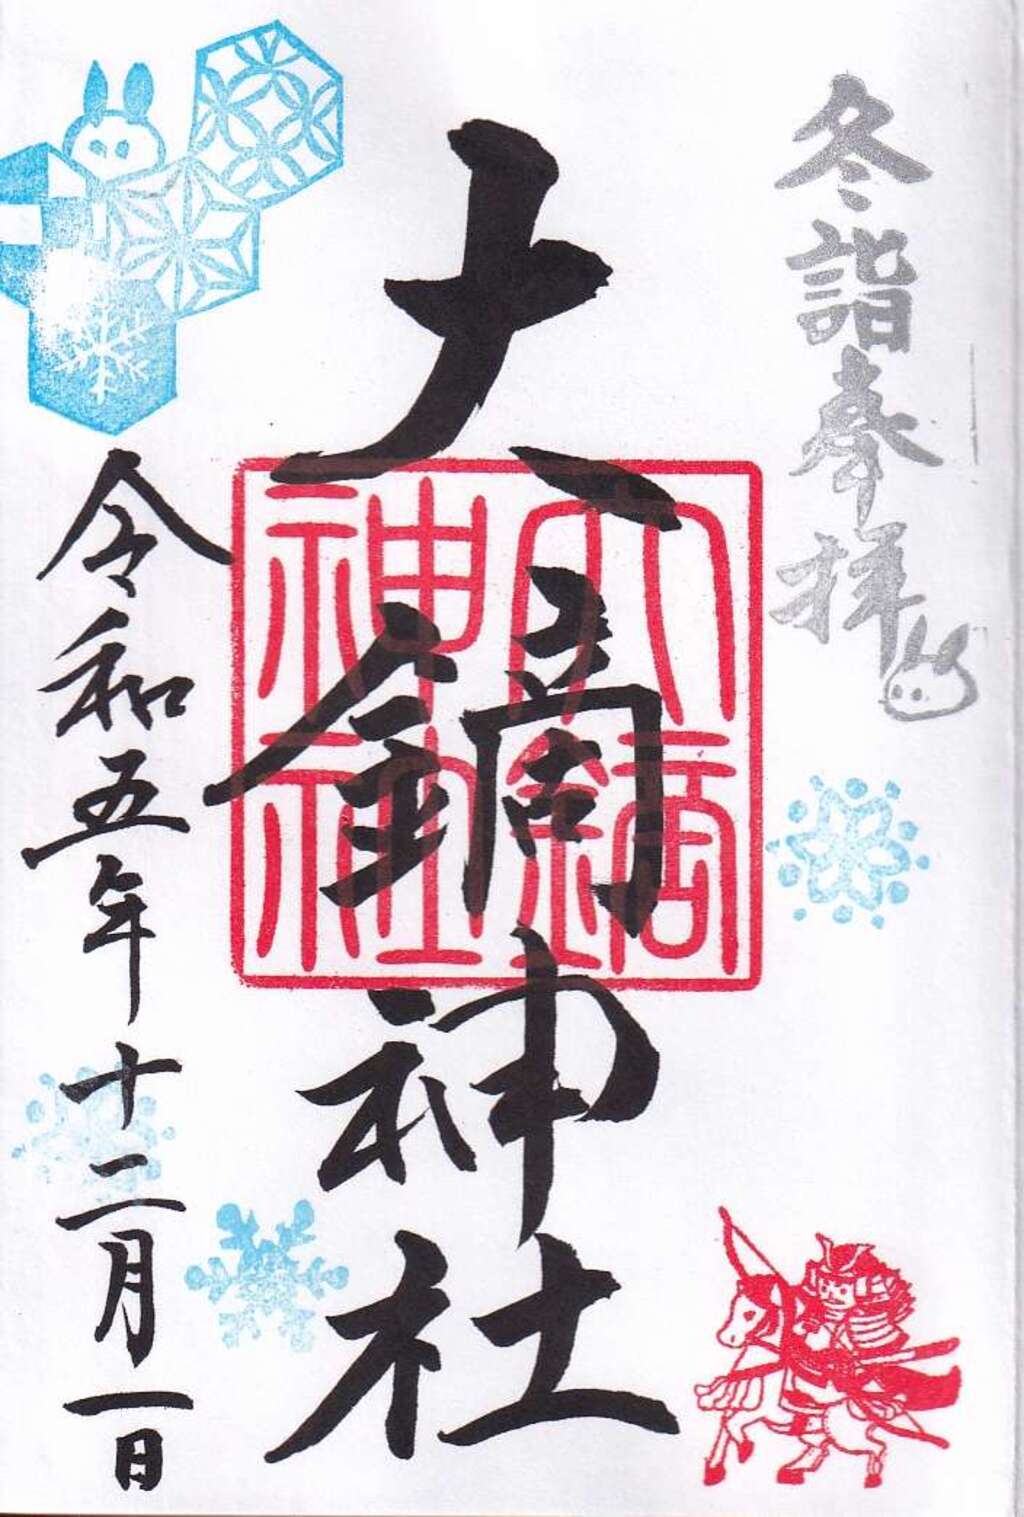 冬詣奉拝
大鏑神社
大鏑
神社
令和五年十二月一日